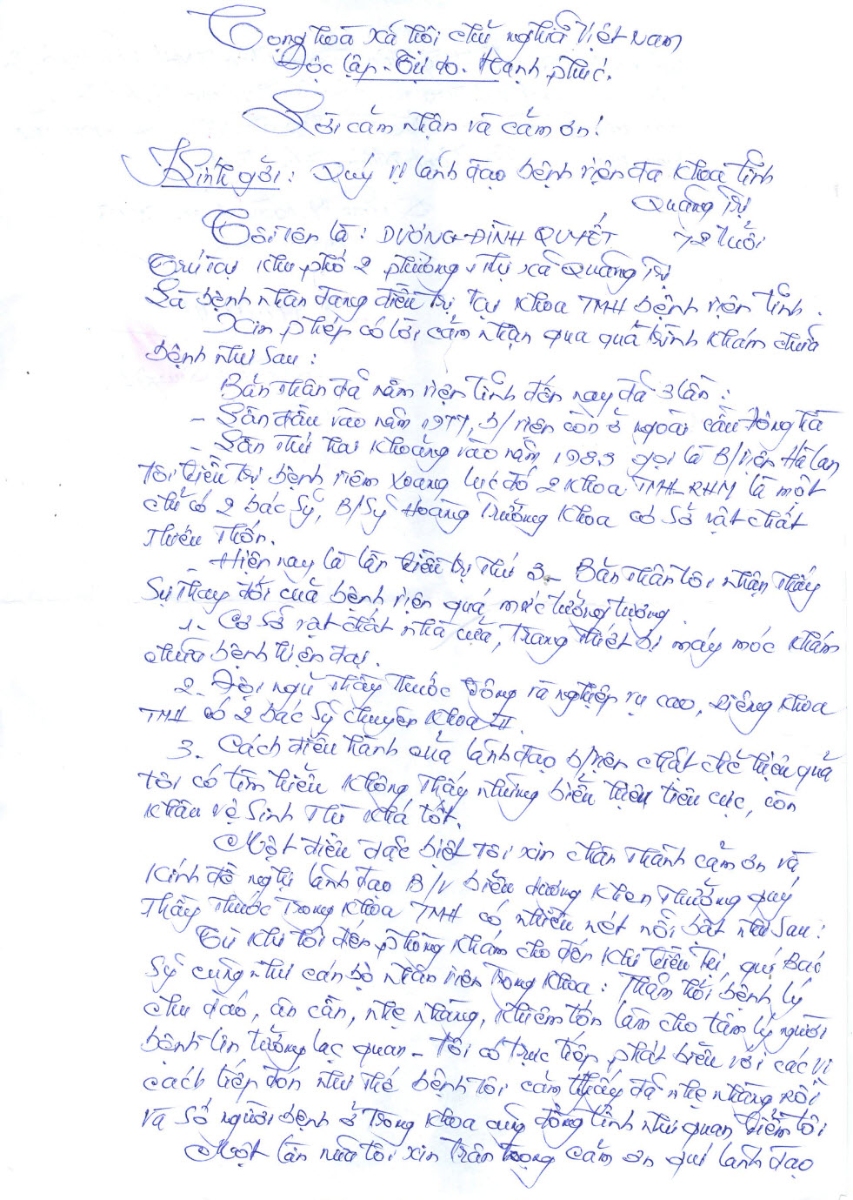 Cộng hoà xã hội chủ nghĩa Việt Nam
Độc lập - Tự do - Hạnh phúc.
Lời cảm nhận và cảm ơn!
Kính gởi: Quý vị lãnh đạo bệnh viện đa khoa tỉnh
Quảng Trị
Tôi tên là: DƯƠNG ĐÌNH QUYẾT 72 tuổi
Trú tại khu phố 2 phường 1 thị xã Quảng Trị
Là bệnh nhân đang điều trị tại khoa TMH bệnh viện tỉnh.
Xin phép có lời cảm nhận qua quá trình khám chữa
bệnh như sau:
Bản thân đã nằm viện tỉnh đến nay đã 3 lần:
- Lần đầu vào năm 1977, b/viện còn ở ngoài cầu Đông Hà
- Lần thứ hai khoảng vào năm 1983 gọi là B/viện Hà lan
tôi điều trị bệnh viêm xoang lực đó 2 khoa TMH-RHM là một
chỉ có 2 bác sỹ, B/sỹ Hoàng Trưởng khoa cơ sở vật chất
thiếu thốn.
- Hiện nay là lần điều trị thứ 3 - Bản thân tôi nhận thấy
sự thay đổi của bệnh viện quá mức tưởng tượng.
1. Cơ sở vật chất nhà cửa, trang thiết bị máy móc khám
chữa bệnh hiện đại.
2. Đội ngũ thầy thuốc đông và nghiệp vụ cao, riêng khoa
TMH có 2 bác sỹ chuyên khoa II.
3. Cách điều hành quả lãnh đạo b/viện chặt chẽ hiệu quả
tôi có tìm hiểu không thấy những biểu hiện tiêu cực, còn
khâu vệ sinh thì khá tốt.
Một điều đặc biệt tôi xin chân thành cảm ơn và
kính đề nghị lãnh đạo B/V biểu dương khen thưởng quý
thầy thuốc trong khoa TMH có nhiều nét nổi bật như sau:
Từ khi tôi đến phòng khám cho đến khi điều trị, quý Bác
sỹ cũng như cán bộ nhân viên trong khoa: Thăm hỏi bệnh lý
chu đáo, ân cần, nhẹ nhàng, khiêm tốn làm cho tâm lý người
bệnh tin tưởng lạc quan - Tôi có trực tiếp phát biểu với các vị
cách tiếp đón như thế bệnh tôi cảm thấy đã nhẹ nhàng rồi
và số người bệnh ở trong khoa cũng đồng tình như quan điểm tôi
Một lần nữa tôi xin trân trọng cảm ơn quí lãnh đạo